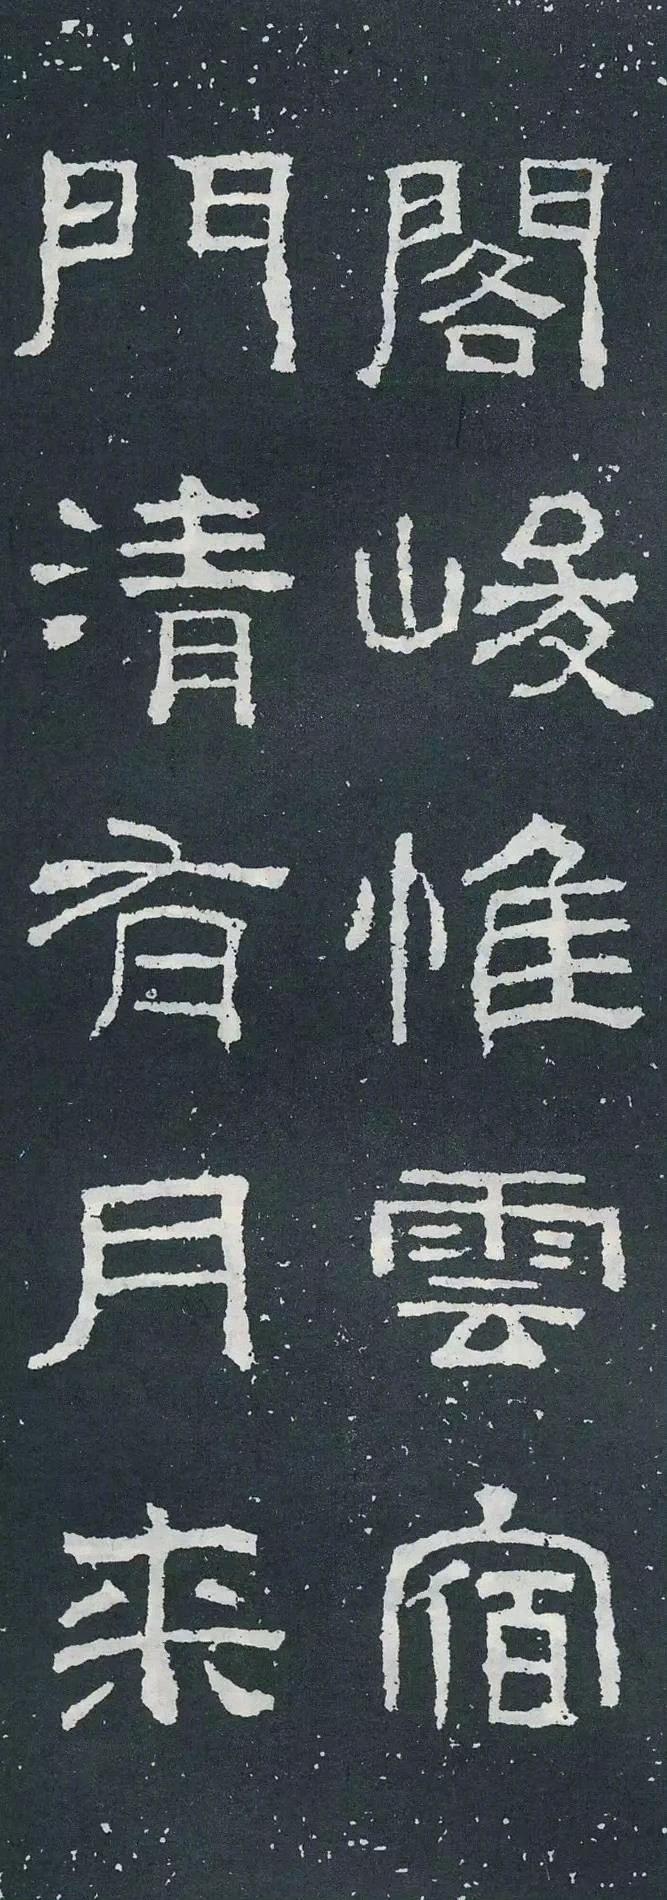 閣峻惟雲宿
門清有月来